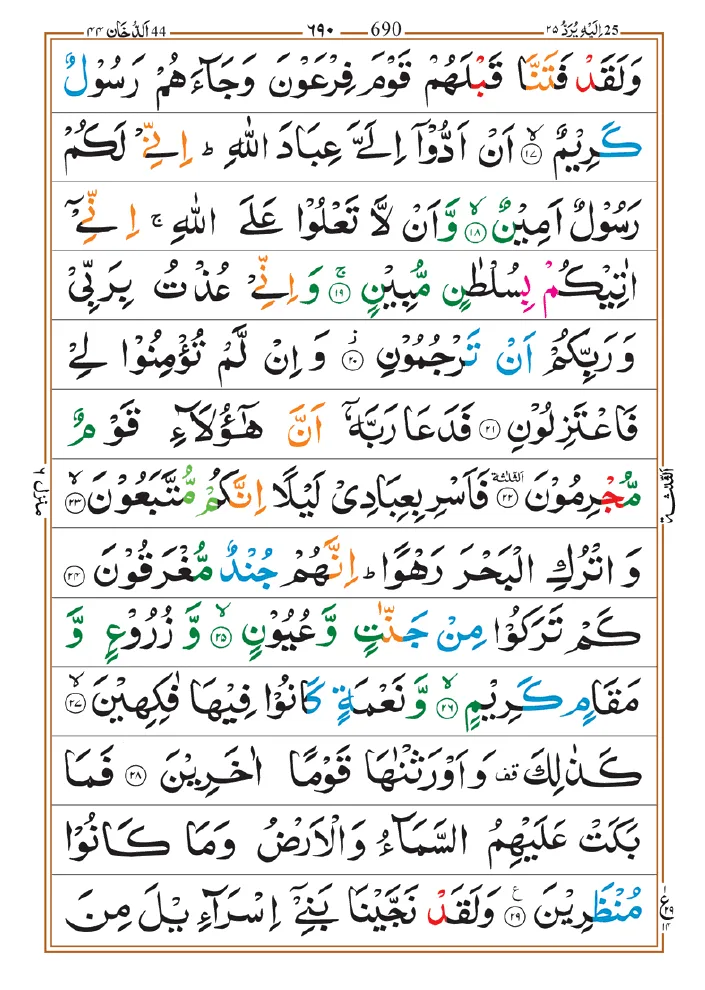 25 اِلَيْهِ يُرَدُّ ٢٥
690
٦٩٠
44 اَلدُّخَان ٤٤
وَلَقَدْ فَتَنَّا قَبْلَهُمْ قَوْمَ فِرْعَوْنَ وَجَآءَهُمْ رَسُوْلٌ
كَرِيْمٌ ۙ‏﴿۱۷﴾ اَنْ اَدُّوْٓا اِلَىَّ عِبَادَ اللّٰهِ ؕ اِنِّىْ لَكُمْ
رَسُوْلٌ اَمِيْنٌ ۙ‏﴿۱۸﴾ وَّاَنْ لَّا تَعْلُوْا عَلَى اللّٰهِ ۚ اِنِّىْۤ
اٰتِيْكُمْ بِسُلْطٰنٍ مُّبِيْنٍ ۚ‏﴿۱۹﴾ وَاِنِّىْ عُذْتُ بِرَبِّىْ
وَرَبِّكُمْ اَنْ تَرْجُمُوْنِ ﴿۲۰﴾ ز وَاِنْ لَّمْ تُؤْمِنُوْا لِىْ
فَاعْتَزِلُوْنِ ﴿۲۱﴾ فَدَعَا رَبَّهٗۤ اَنَّ هٰٓؤُلَاۤءِ قَوْمٌ
مُّجْرِمُوْنَ ﴿۲۲﴾ الثلاثة فَاَسْرِ بِعِبَادِىْ لَيْلًا اِنَّكُمْ مُّتَّبَعُوْنَ ۙ‏﴿۲۳﴾
وَاتْرُكِ الْبَحْرَ رَهْوًا ؕ اِنَّهُمْ جُنْدٌ مُّغْرَقُوْنَ ﴿۲۴﴾
كَمْ تَرَكُوْا مِنْ جَنّٰتٍ وَّعُيُوْنٍ ۙ‏﴿۲۵﴾ وَّزُرُوْعٍ وَّ
مَقَامٍ كَرِيْمٍ ۙ‏﴿۲۶﴾ وَّنَعْمَةٍ كَانُوْا فِيْهَا فٰكِهِيْنَ ۙ‏﴿۲۷﴾
كَذٰلِكَ قف وَاَوْرَثْنٰهَا قَوْمًا اٰخَرِيْنَ ﴿۲۸﴾ فَمَا
بَكَتْ عَلَيْهِمُ السَّمَآءُ وَالْاَرْضُ وَمَا كَانُوْا
مُنْظَرِيْنَ ﴿۲۹﴾ ع وَلَقَدْ نَجَّيْنَا بَنِىْۤ اِسْرَآءِيْلَ مِنَ
الثلاثة
منزل ٦
ع ٢٩ ١٤